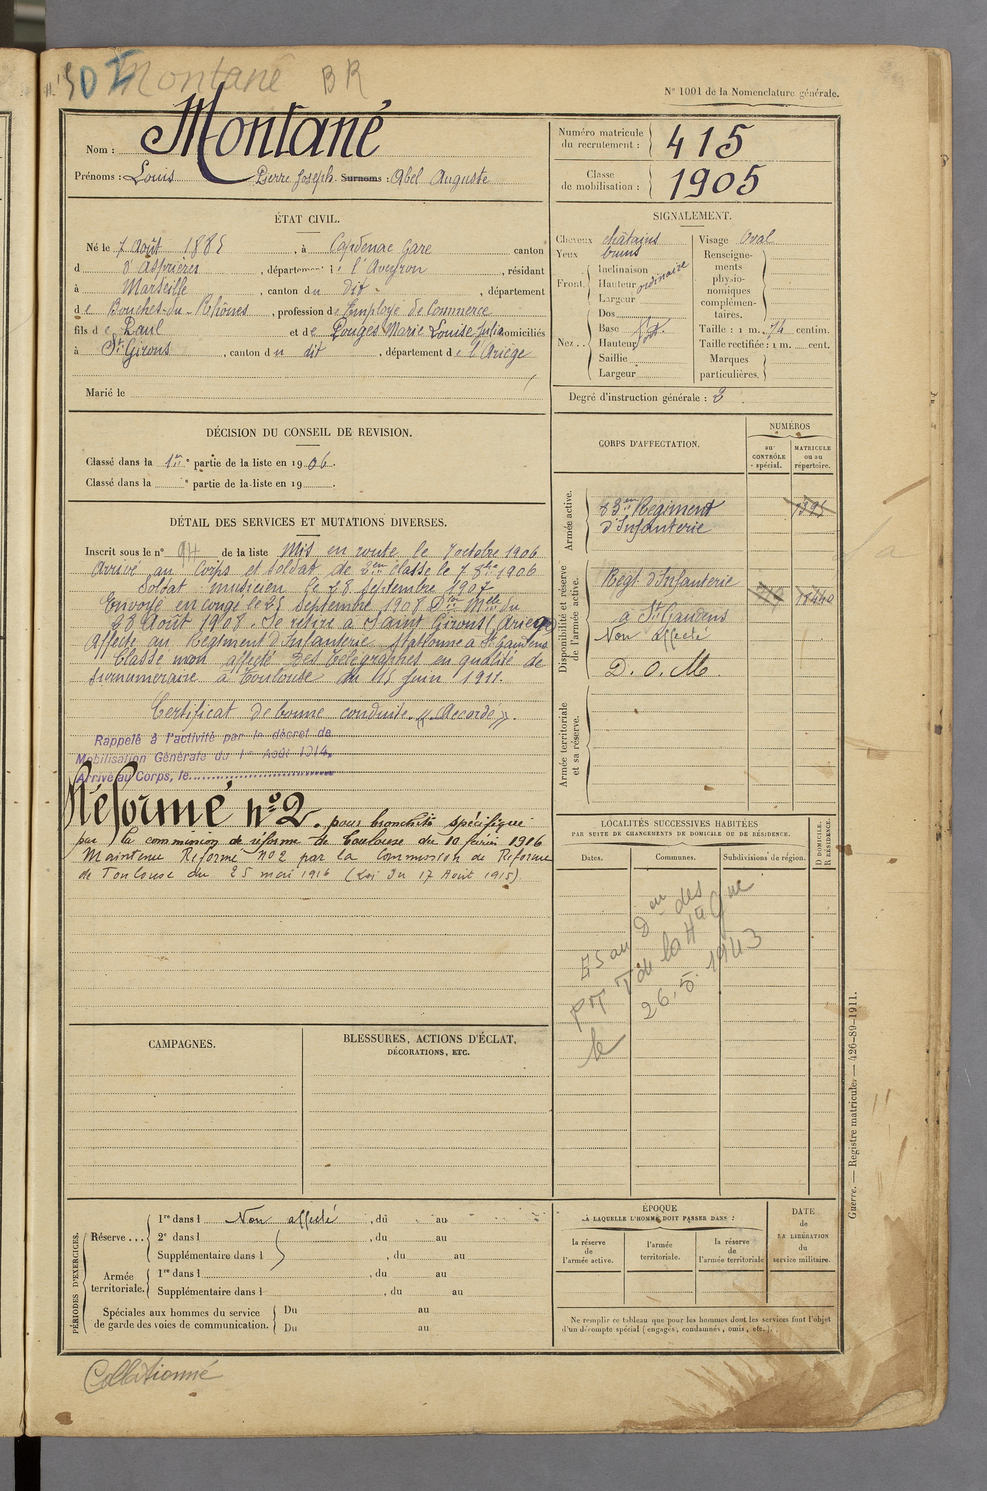 Montané BR
N° 1001 de la Nomenclature générale.
Nom : Montané
Prénoms : Louis Pierre Joseph Surnoms : Abel Auguste
Numéro matricule du recrutement : 415
Classe de mobilisation : 1905
ÉTAT CIVIL.
Né le 7 Août 1885, à Capdenac Gare canton
d'Asprières, département de l'Aveyron, résidant
à Marseille, canton du dit, département
de Bouches-du-Rhônes, profession d'Employé de Commerce
fils de Paul et de Pouges Marie Louise Julia domiciliés
à St Girons, canton du dit, département de l'Ariège
Marié le
SIGNALEMENT.
Cheveux châtains
Yeux bruns
Front. Inclinaison
Hauteur ordinaire
Largeur
Nez.. Dos
Base
Hauteur
Saillie
Largeur
Visage Oval
Renseignements physionomiques complémentaires.
Taille : 1 m. 74 centim.
Taille rectifiée : 1 m. cent.
Marques particulières.
Degré d'instruction générale : 3
DÉCISION DU CONSEIL DE REVISION.
Classé dans la 1re partie de la liste en 1906.
Classé dans la e partie de la liste en 19
DÉTAIL DES SERVICES ET MUTATIONS DIVERSES.
Inscrit sous le n° 94 de la liste Mis en route le 7 octobre 1906
Arrivé au Corps et soldat de 2em classe le 7 8bre 1906
Soldat musicien le 28 Septembre 1907
Envoyé en congé le 25 Septembre 1908 Don Mlle du
23 Août 1908. Se retire à Saint Girons (Ariège
Affecté au Régiment d'Infanterie stationné à St Gaudens
Classé non affecté des télégraphes en qualité de
surnuméraire à Toulouse du 15 juin 1911.
Certificat de bonne conduite « Accordé ».
Rappelé à l'activité par le décret de
Mobilisation Générale du 1er Août 1914.
Arrivé au Corps, le
Réformé n° 2. pour bronchite spécifique
par la commission de réforme de Toulouse du 10 février 1916
Maintenu Réformé n°2 par la Commission de Réforme
de Toulouse du 25 mai 1916 (Loi du 17 Août 1915)
CORPS D'AFFECTATION.
NUMÉROS
au CONTRÔLE spécial.
MATRICULE ou au répertoire.
Armée active.
83em Régiment
d'Infanterie
Disponibilité et réserve de l'armée active.
Régt d'Infanterie
à St Gaudens
Non affecté
D. O. M
Armée territoriale et sa réserve.
LOCALITÉS SUCCESSIVES HABITÉES
PAR SUITE DE CHANGEMENTS DE DOMICILE OU DE RÉSIDENCE.
Dates.
Communes.
Subdivisions de région.
D DOMICILE. R RÉSIDENCE.
ES au Den des
PTT de la Hte Gne
le 26.5.1943
CAMPAGNES.
BLESSURES, ACTIONS D'ÉCLAT,
DÉCORATIONS, ETC.
PÉRIODES D'EXERCICES.
Réserve... 1re dans l Non affecté, du au
2e dans l, du au
Supplémentaire dans l, du au
Armée territoriale. 1re dans l, du au
Supplémentaire dans l, du au
Spéciales aux hommes du service de garde des voies de communication. Du au
Du au
ÉPOQUE
A LAQUELLE L'HOMME DOIT PASSER DANS :
la réserve de l'armée active.
l'armée territoriale.
la réserve de l'armée territoriale
DATE de LA LIBÉRATION du service militaire.
Ne remplir ce tableau que pour les hommes dont les services font l'objet
d'un décompte spécial (engagés, condamnés, omis, etc.).
Guerre. — Registre matricule. — 426-89-1911.
Collationné